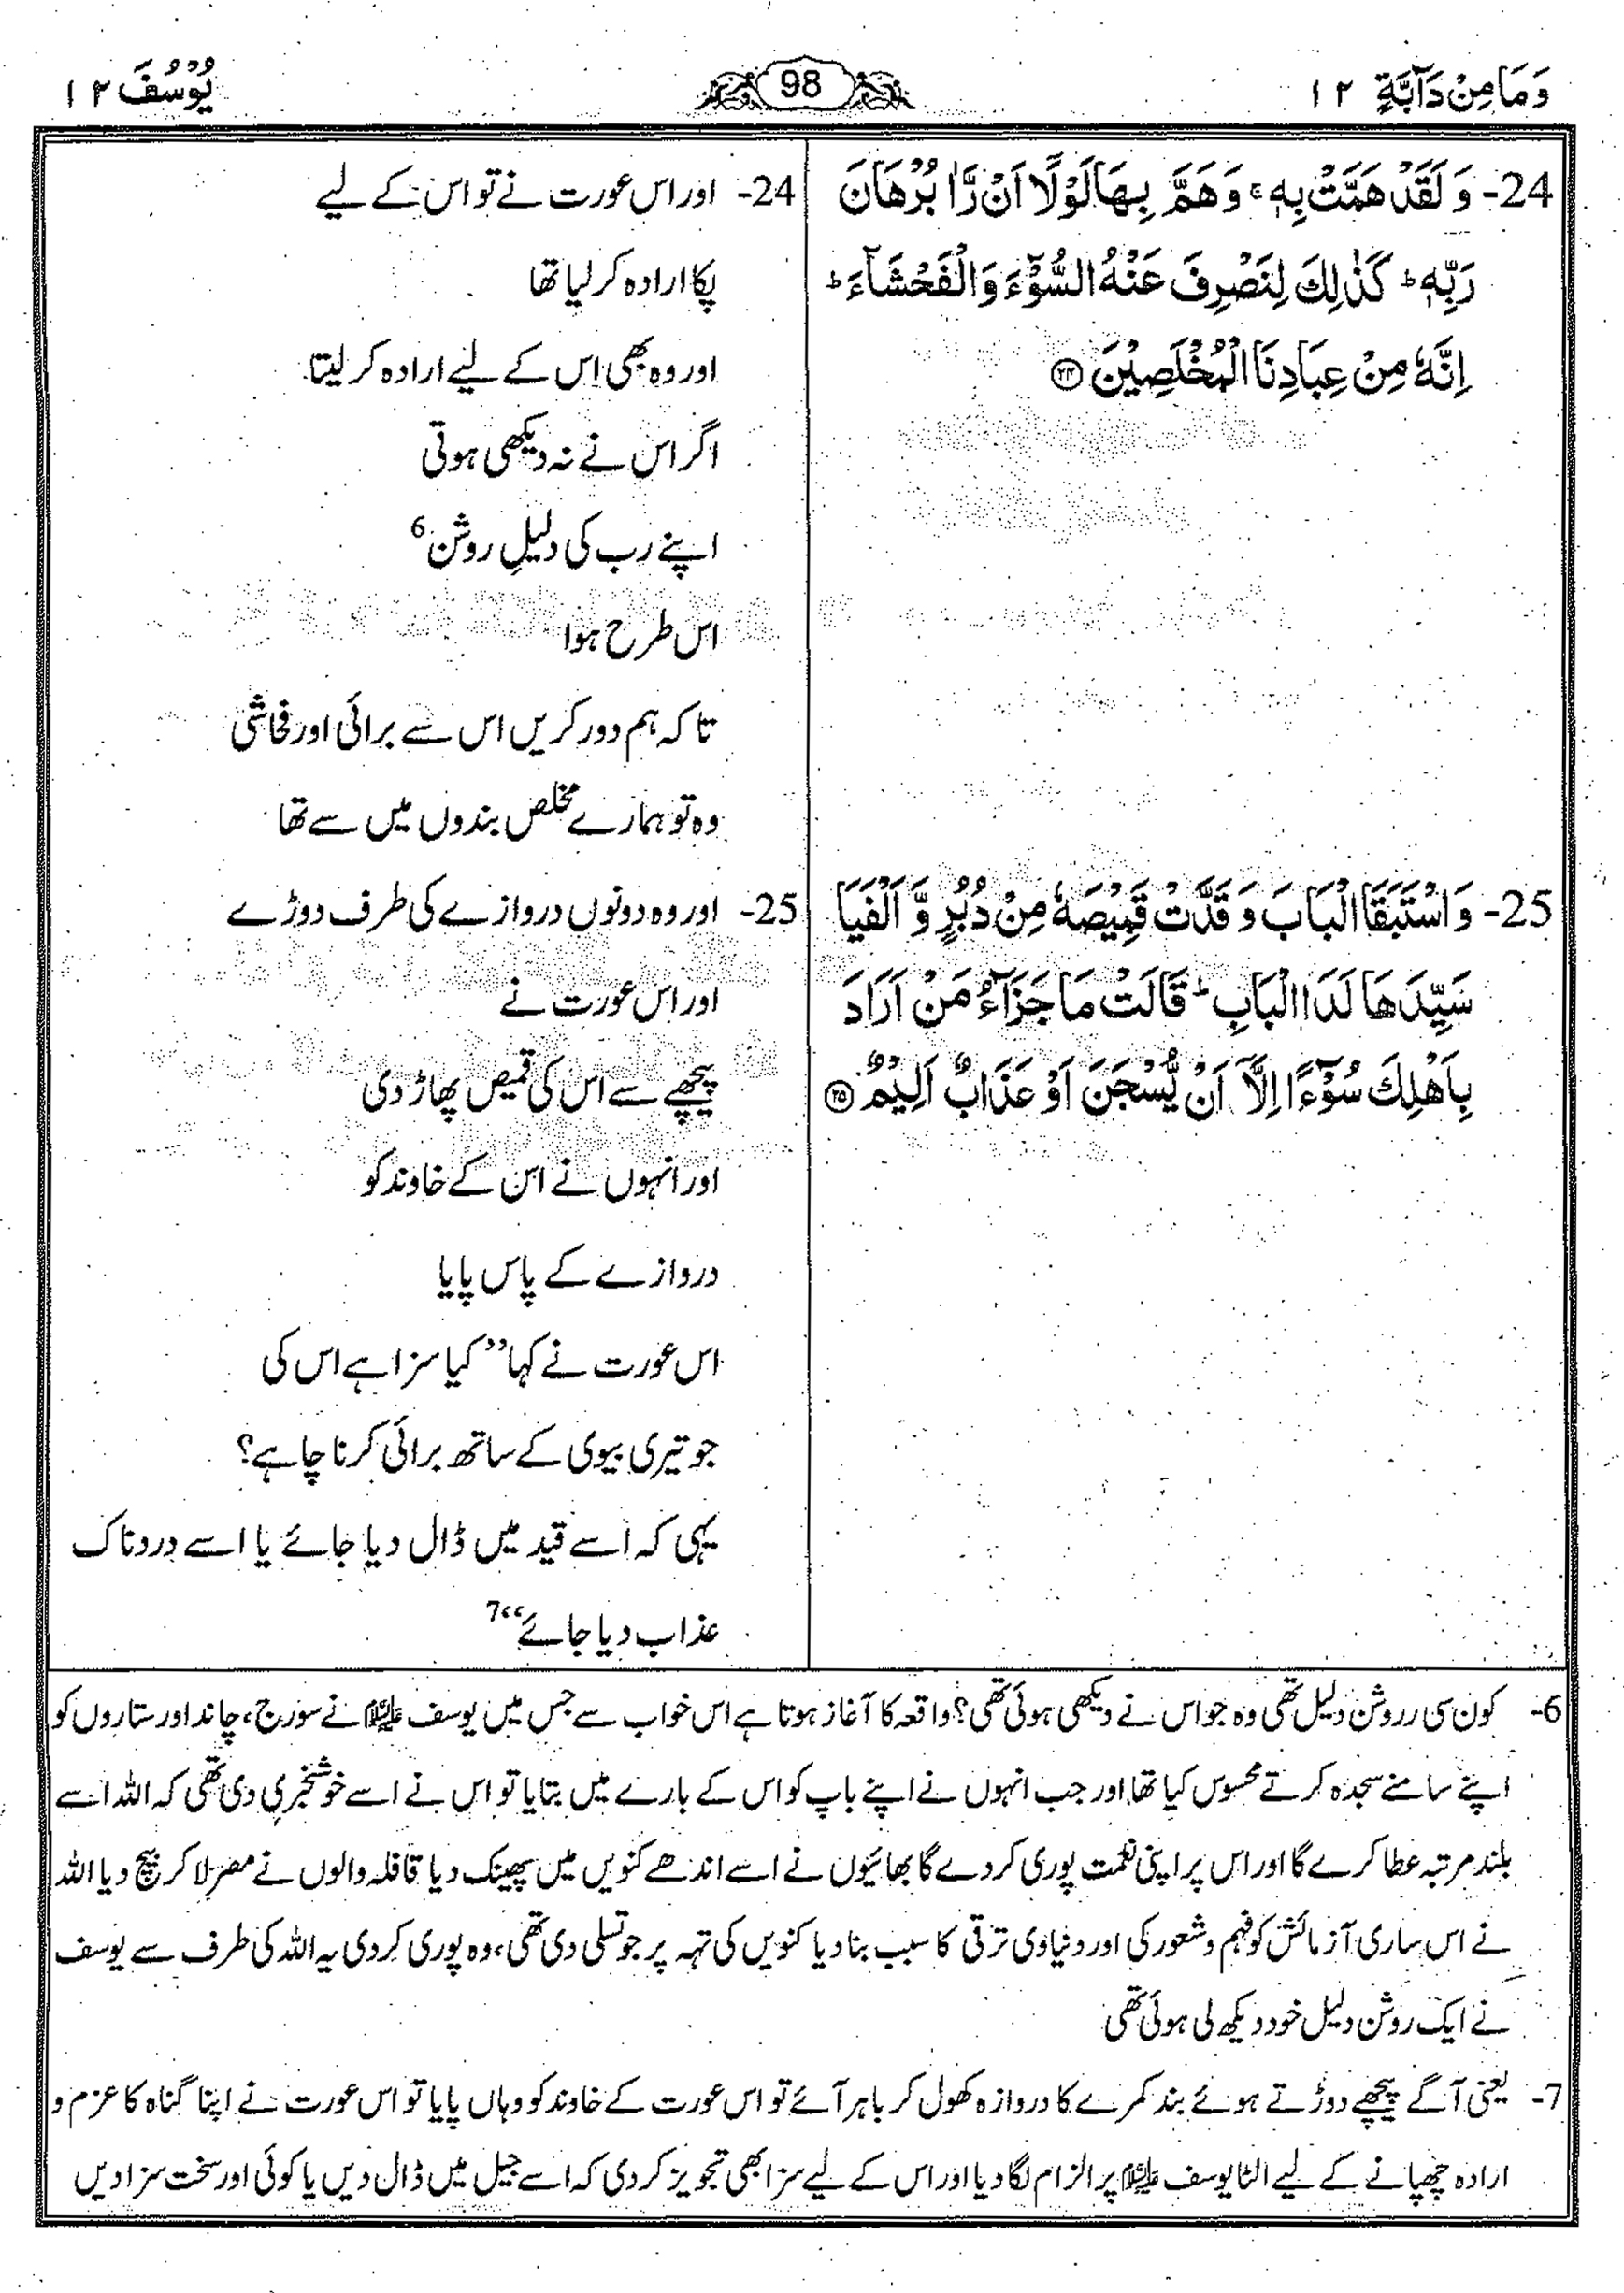 وَمَا مِنْ دَآبَّةٍ ١٢
98
يُوْسُفَ ١٢
24- وَ لَقَدْ هَمَّتْ بِهٖ ۚ وَ هَمَّ بِهَا لَوْلَاۤ اَنْ رَّاٰ بُرْهَانَ
رَبِّهٖ ؕ كَذٰلِكَ لِنَصْرِفَ عَنْهُ السُّوْٓءَ وَ الْفَحْشَآءَ ؕ
اِنَّهٗ مِنْ عِبَادِنَا الْمُخْلَصِيْنَ ﴿۲۴﴾
24- اور اس عورت نے تو اس کے لیے
پکا ارادہ کر لیا تھا
اور وہ بھی اس کے لیے ارادہ کر لیتا
اگر اس نے نہ دیکھی ہوتی
اپنے رب کی دلیلِ روشن 6
اس طرح ہوا
تا کہ ہم دور کریں اس سے برائی اور فحاشی
وہ تو ہمارے مخلص بندوں میں سے تھا
25- وَ اسْتَبَقَا الْبَابَ وَ قَدَّتْ قَمِيْصَهٗ مِنْ دُبُرٍ وَّ اَلْفَيَا
سَيِّدَهَا لَدَا الْبَابِ ؕ قَالَتْ مَا جَزَآءُ مَنْ اَرَادَ
بِاَهْلِكَ سُوْٓءًا اِلَّاۤ اَنْ يُّسْجَنَ اَوْ عَذَابٌ اَلِيْمٌ ﴿۲۵﴾
25- اور وہ دونوں دروازے کی طرف دوڑے
اور اس عورت نے
پیچھے سے اس کی قمیص پھاڑ دی
اور انہوں نے اس کے خاوند کو
دروازے کے پاس پایا
اس عورت نے کہا ’’ کیا سزا ہے اس کی
جو تیری بیوی کے ساتھ برائی کرنا چاہے؟
یہی کہ اسے قید میں ڈال دیا جائے یا اسے دردناک
عذاب دیا جائے‘‘ 7
6- کون سی رروشن دلیل تھی وہ جو اس نے دیکھی ہوئی تھی؟ واقعہ کا آغاز ہوتا ہے اس خواب سے جس میں یوسف علیہ السلام نے سورج، چاند اور ستاروں کو
اپنے سامنے سجدہ کرتے محسوس کیا تھا اور جب انہوں نے اپنے باپ کو اس کے بارے میں بتایا تو اس نے اسے خوشخبری دی تھی کہ اللہ اسے
بلند مرتبہ عطا کرے گا اور اس پر اپنی نعمت پوری کر دے گا بھائیوں نے اسے اندھے کنویں میں پھینک دیا قافلہ والوں نے مصر لا کر بیچ دیا اللہ
نے اس ساری آزمائش کو فہم و شعور کی اور دنیاوی ترقی کا سبب بنا دیا کنویں کی تہہ پر جو تسلی دی تھی، وہ پوری کر دی یہ اللہ کی طرف سے یوسف
نے ایک روشن دلیل خود دیکھ لی ہوئی تھی
7- یعنی آگے پیچھے دوڑتے ہوئے بند کمرے کا دروازہ کھول کر باہر آئے تو اس عورت کے خاوند کو وہاں پایا تو اس عورت نے اپنا گناہ کا عزم و
ارادہ چھپانے کے لیے الٹا یوسف علیہ السلام پر الزام لگا دیا اور اس کے لیے سزا بھی تجویز کر دی کہ اسے جیل میں ڈال دیں یا کوئی اور سخت سزا دیں